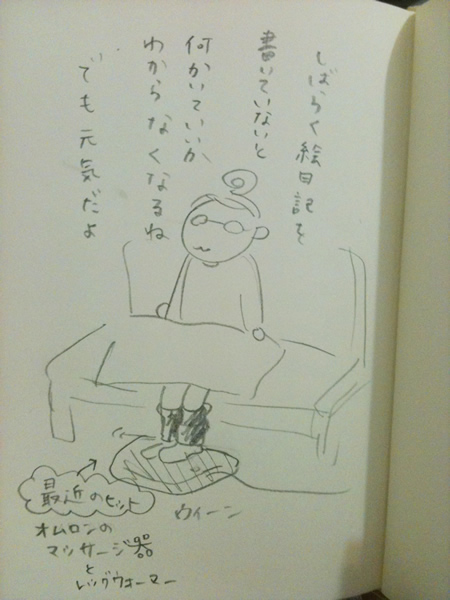 しばらく絵日記を
書いていないと
何かいていいか、
わからなくなるね
でも元気だよ
最近のヒット
オムロンの
マッサージ器
と
レッグウォーマー
ウィーン